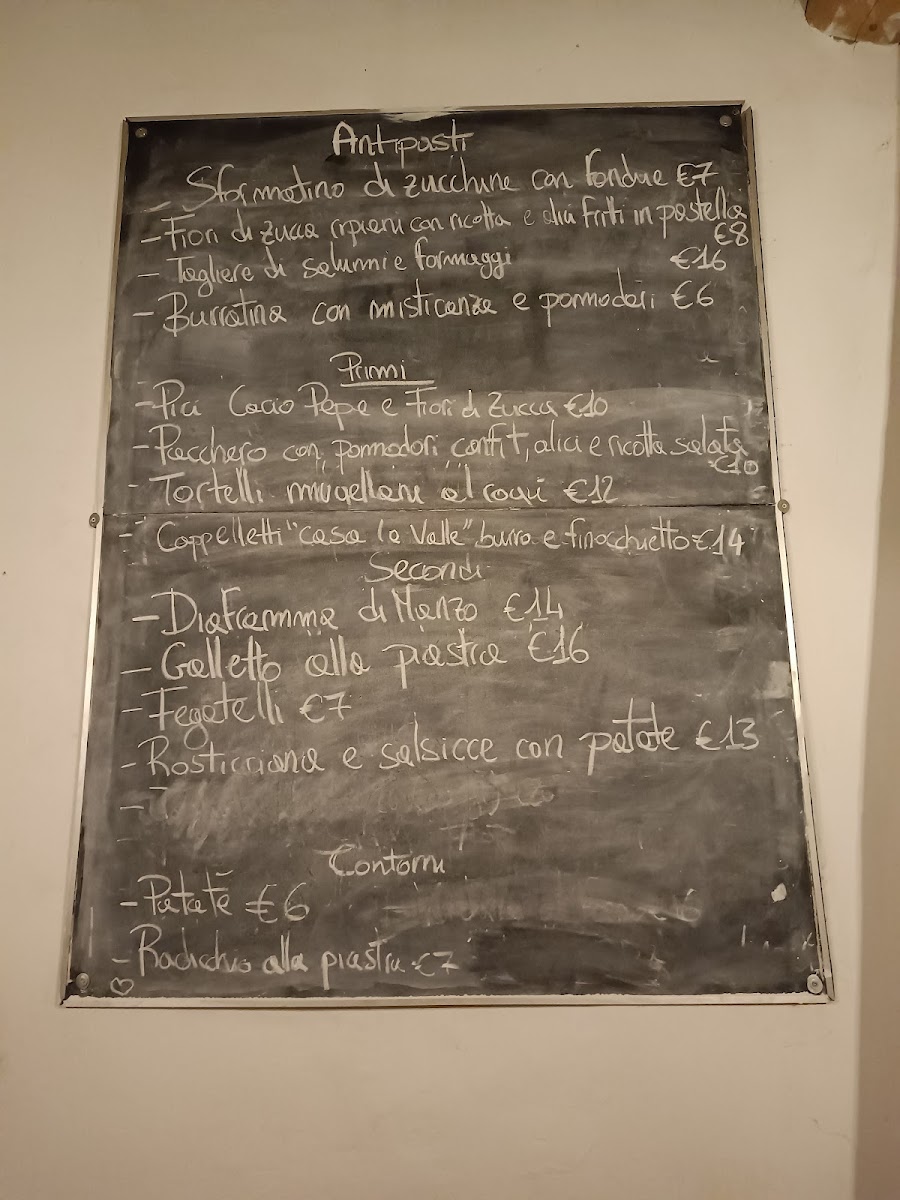 Antipasti
- Sformatino di zucchine con fondue €7
- Fiori di zucca ripieni con ricotta e alici fritti in pastella
€8
- Tagliere di salumi e formaggi €16
- Burratina con misticanza e pomodori €6
Primi
- Pici Cacio Pepe e Fiori di Zucca €10
- Pacchero con pomodori confit, alici e ricotta salata
€10
- Tortelli mugellani al ragù €12
- Cappelletti "casa la Valle" burro e finocchietto €14
Secondi
- Diaframma di Manzo €14
- Galletto alla piastra €16
- Fegatelli €7
- Rosticciana e salsicce con patate €13
Contorni
- Patate €6
- Radicchio alla piastra €7